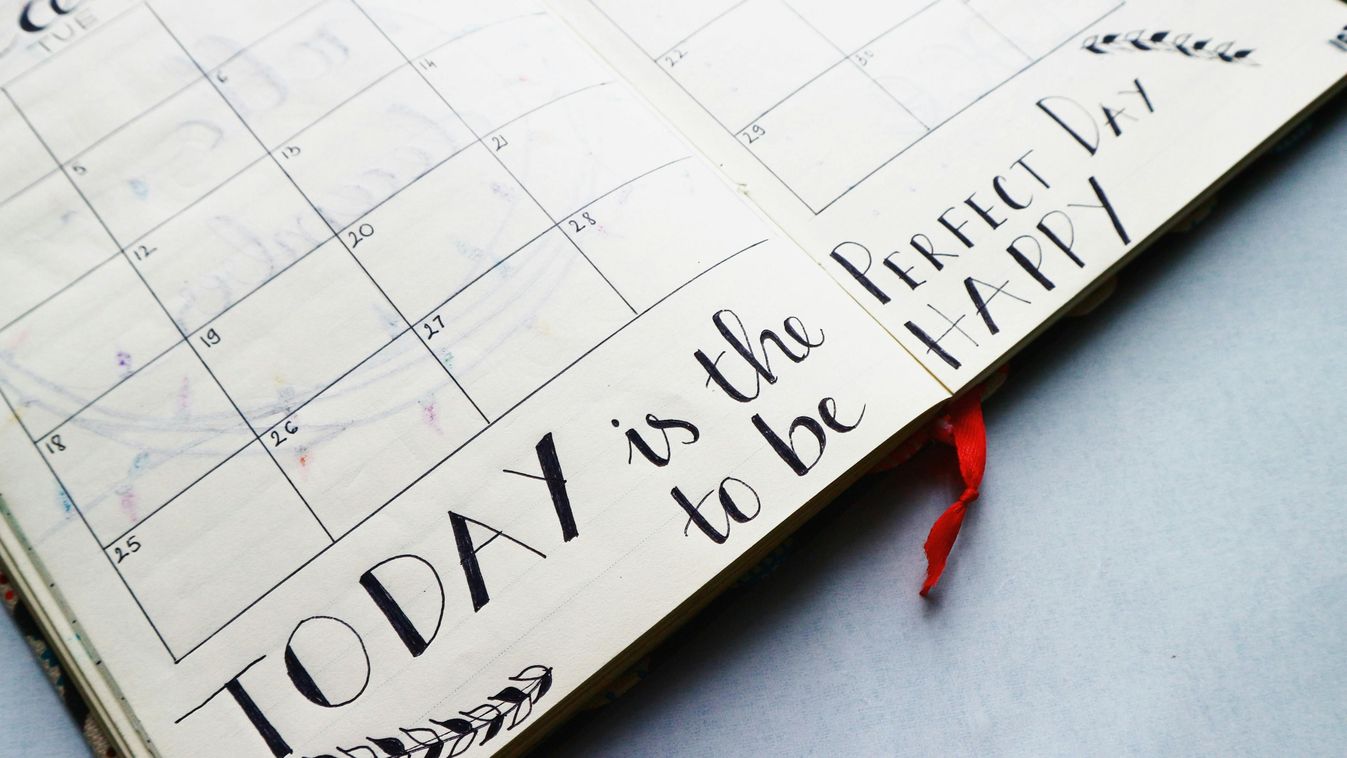 TUE
6
14
5
13
21
12
20
28
19
27
18
26
25
22
30
29
TODAY is the PERFECT DAY
to be HAPPY